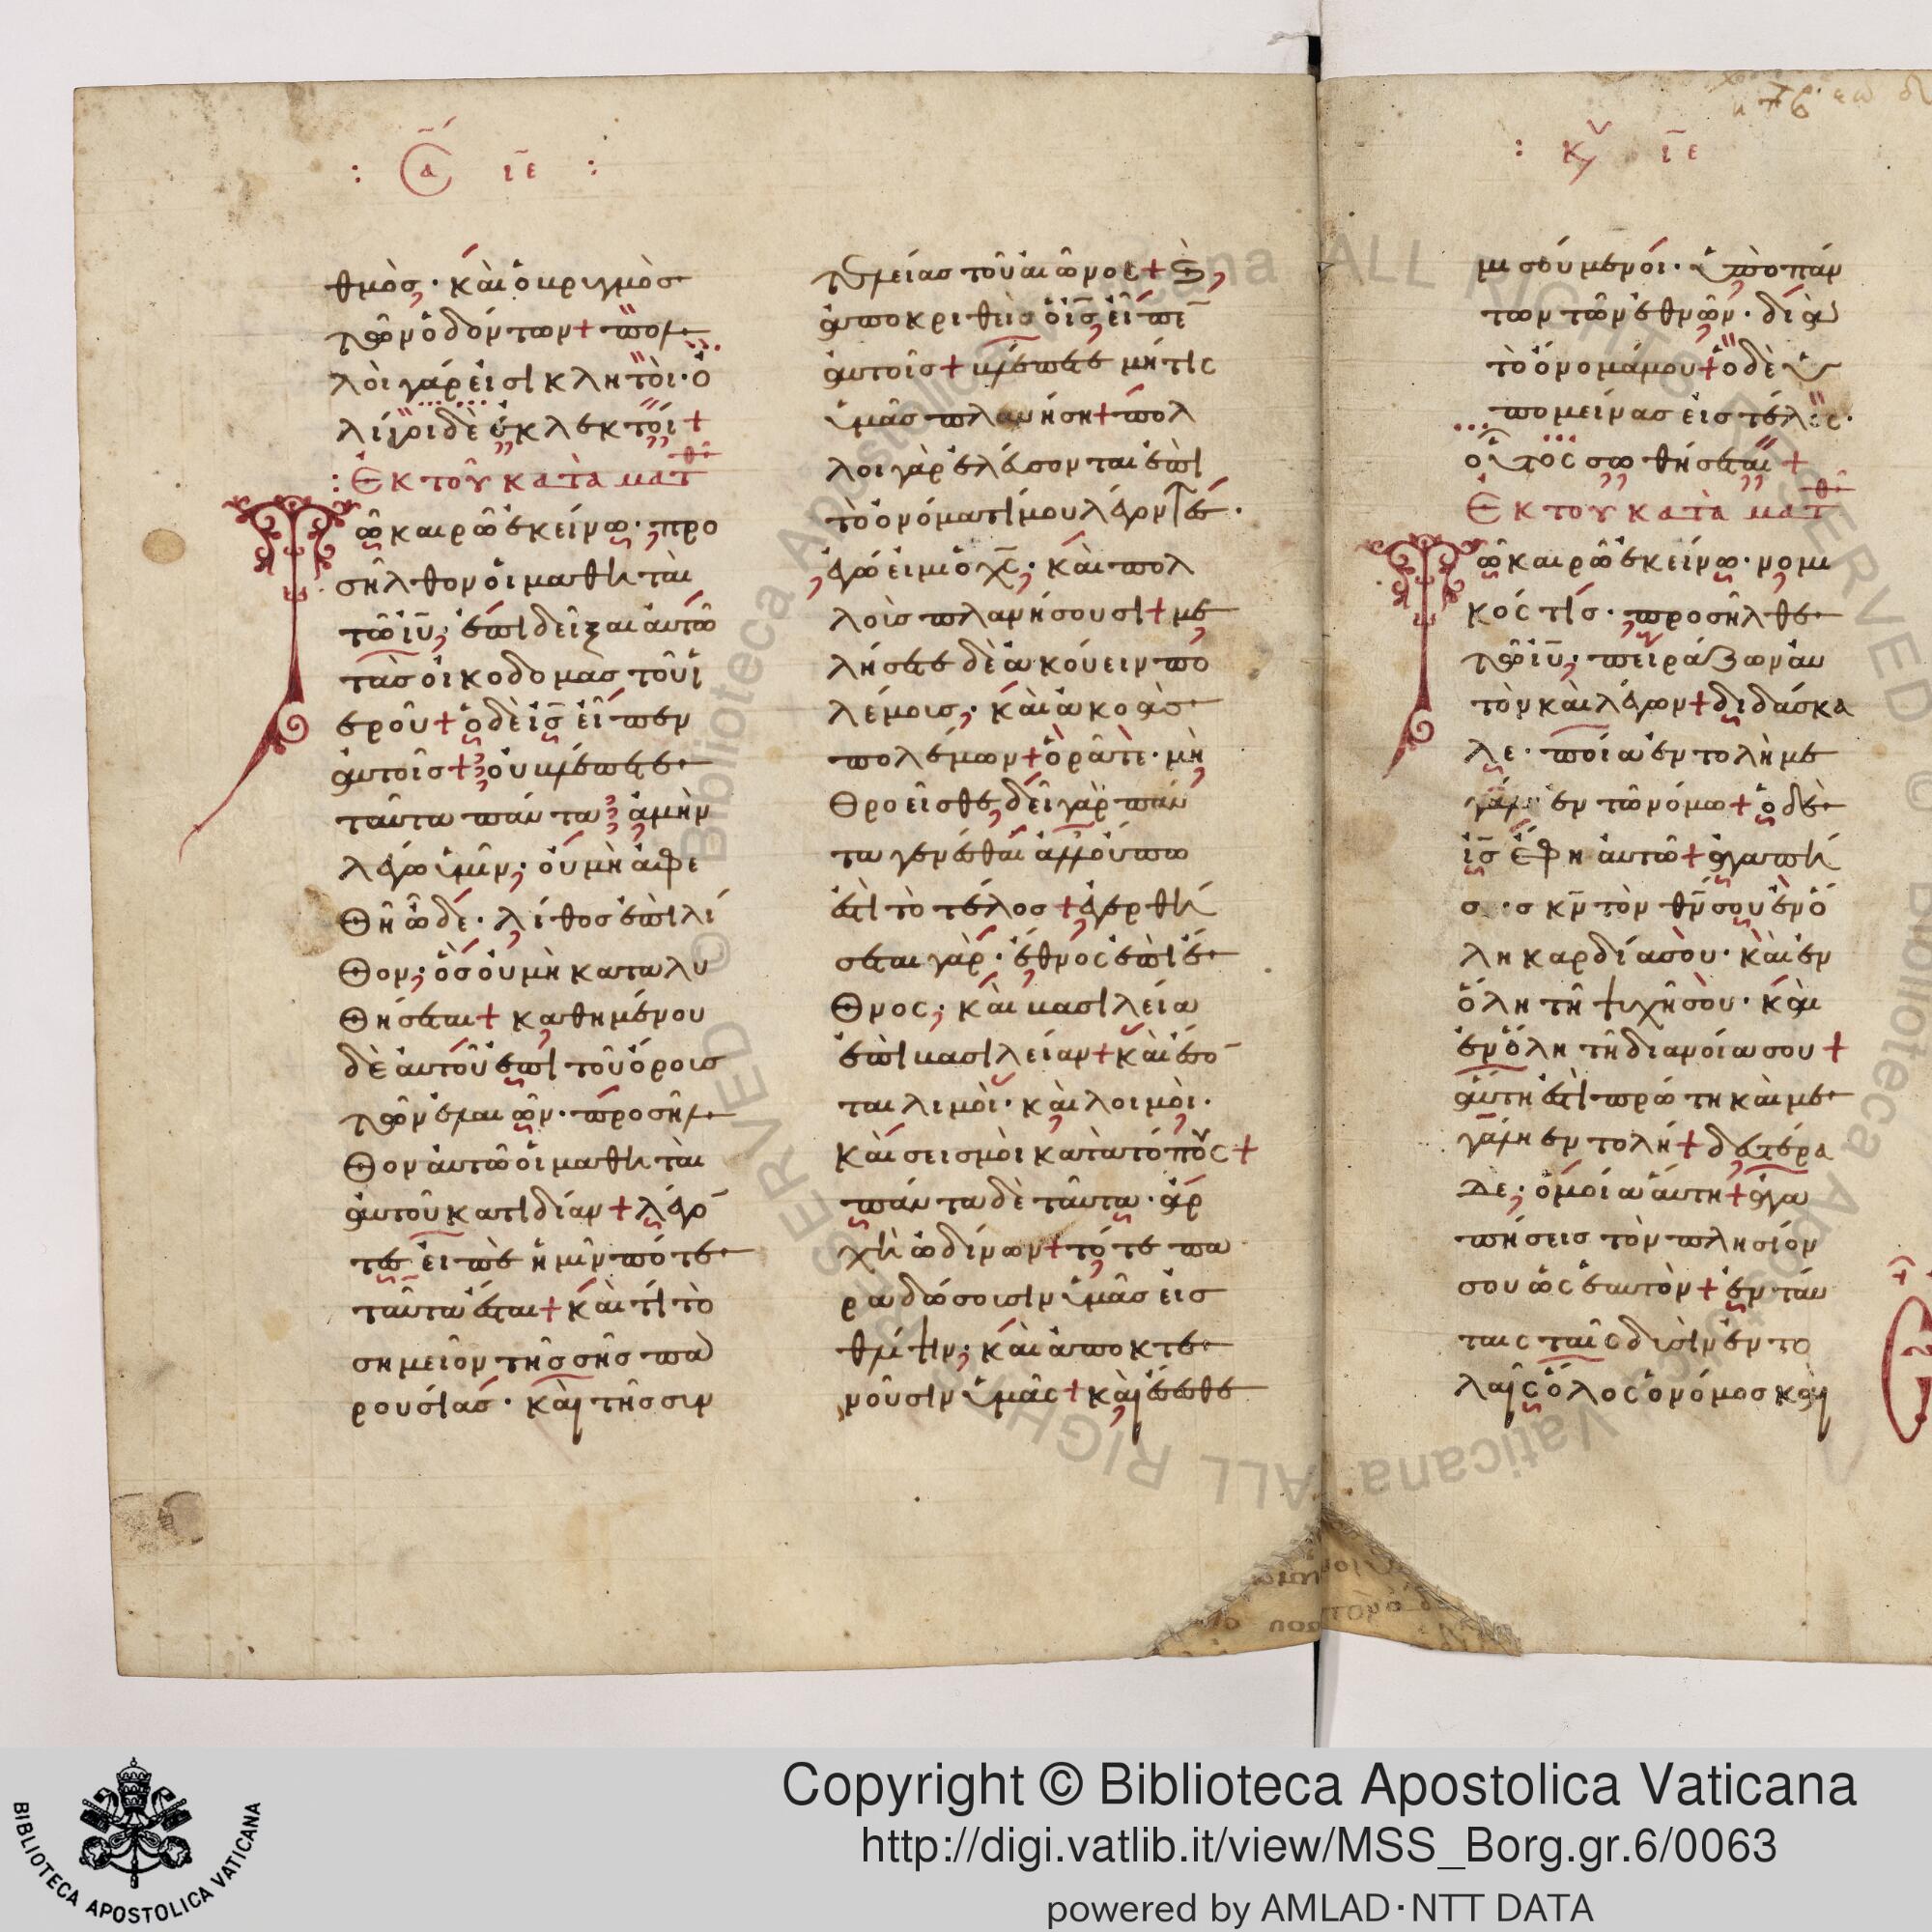 : Σα ιε :
θμὸς, καὶ ὁ βριγμὸς
τῶν ὀδόντων + πολ
λοὶ γάρ εἰσι κλητοὶ· ὀ
λίγοι δὲ ἐκλεκτοί +
: Ἐκ τοῦ κατὰ ματθ
Τῶ καιρῶ ἐκείνω· προ
σῆλθον οἱ μαθηται
τῶ ιυ, ἐπιδεῖξαι αὐτῶ
τὰσ οἰκοδομασ τοῦ ἱ
εροῦ + ὁ δὲ ισ εἶπεν
αὐτοῖσ + οὐ βλέπετε
ταῦτα πάντα; ἀμὴν
λέγω ὑμῖν, οὐ μὴ ἀφε
θῆ ὧδε· λίθοσ ἐπὶ λί
θον, ὃσ οὐ μὴ καταλυ
θήσεται + καθημένου
δὲ αὐτοῦ ἐπὶ τοῦ ὄρουσ
τῶν ἐλαιῶν· προσῆλ
θον αὐτῶ οἱ μαθηται
αὐτοῦ κατιδίαν + λέγο
τες εἰπὲ ἡμῖν πότε
ταῦτα ἔσται + καὶ τί τὸ
σημεῖον τῆσ σῆσ πα
ρουσίασ· καὶ τῆσ συν
τελείασ τοῦ αἰῶνος + Καὶ,
ἀποκριθεὶσ ὁ ισ, εἶπεν
αὐτοῖσ + βλέπετε μήτις
ὑμᾶσ πλανήση + πολ
λοι γὰρ ἐλεύσονται ἐπὶ
τὸ ὀνόματί μου λέγοντες·
ἐγώ εἰμι ὁ χς, καὶ πολ
λοὺσ πλανήσουσι + μελ
λήσετε δὲ ἀκούειν πο
λέμουσ, καὶ ἀκοὰσ
πολέμων + ὁρᾶτε· μὴ
θροεῖσθε, δεῖ γὰρ πάν
τα γενέσθαι ἀλλ' οὔπω
ἐστὶ τὸ τέλοσ + ἐγερθή
σεται γὰρ· ἔθνος ἐπὶ ἔ
θνος, καὶ βασιλεία
ἐπὶ βασιλείαν + καὶ ἔσο
ται λιμοὶ· καὶ λοιμοὶ·
καὶ σεισμοὶ κατὰ τόπους +
πάντα δὲ ταῦτα· ἀρ
χὴ ὠδίνων + τότε πα
ραδώσουσιν ὑμᾶσ εἰσ
θλίψιν, καὶ ἀποκτε
νοῦσιν ὑμᾶς + καὶ ἔσεσθε
: Κυ ιε
μισούμενοι· ὑπὸ πάν
των τῶν ἐθνῶν· διὰ
τὸ ὄνομά μου + ὁ δὲ ὑ
πομείνασ εἰσ τέλος·
οὗτος σωθήσεται +
Ἐκ τοῦ κατὰ ματθ
Τῶ καιρῶ ἐκείνω· νομι
κός τίσ· προσῆλθε
τῶ ιυ, πειράζων αὐ
τὸν καὶ λέγων + διδάσκα
λε· ποία ἐντολὴ με
γάλη ἐν τῶ νόμω + ὁ δὲ
ισ ἔφη αὐτῶ + ἀγαπή
σεισ κν τὸν θν σου ἐν ὅ
λη καρδία σου· καὶ ἐν
ὅλη τῆ ψυχῆ σου· καὶ
ἐν ὅλη τῆ διανοία σου +
αὕτη ἐστὶ πρώτη καὶ με
γάλη ἐντολή + δευτέρα
δε, ὁμοία αὕτη + ἀγα
πήσεισ τὸν πλησίον
σου ὡς ἑαυτὸν + ἐν ταύ
ταις ταῖς δυσὶν ἐντο
λαῖς ὅλος ὁ νόμοσ καὶ
Copyright © Biblioteca Apostolica Vaticana
http://digi.vatlib.it/view/MSS_Borg.gr.6/0063
powered by AMLAD·NTT DATA
BIBLIOTECA APOSTOLICA VATICANA